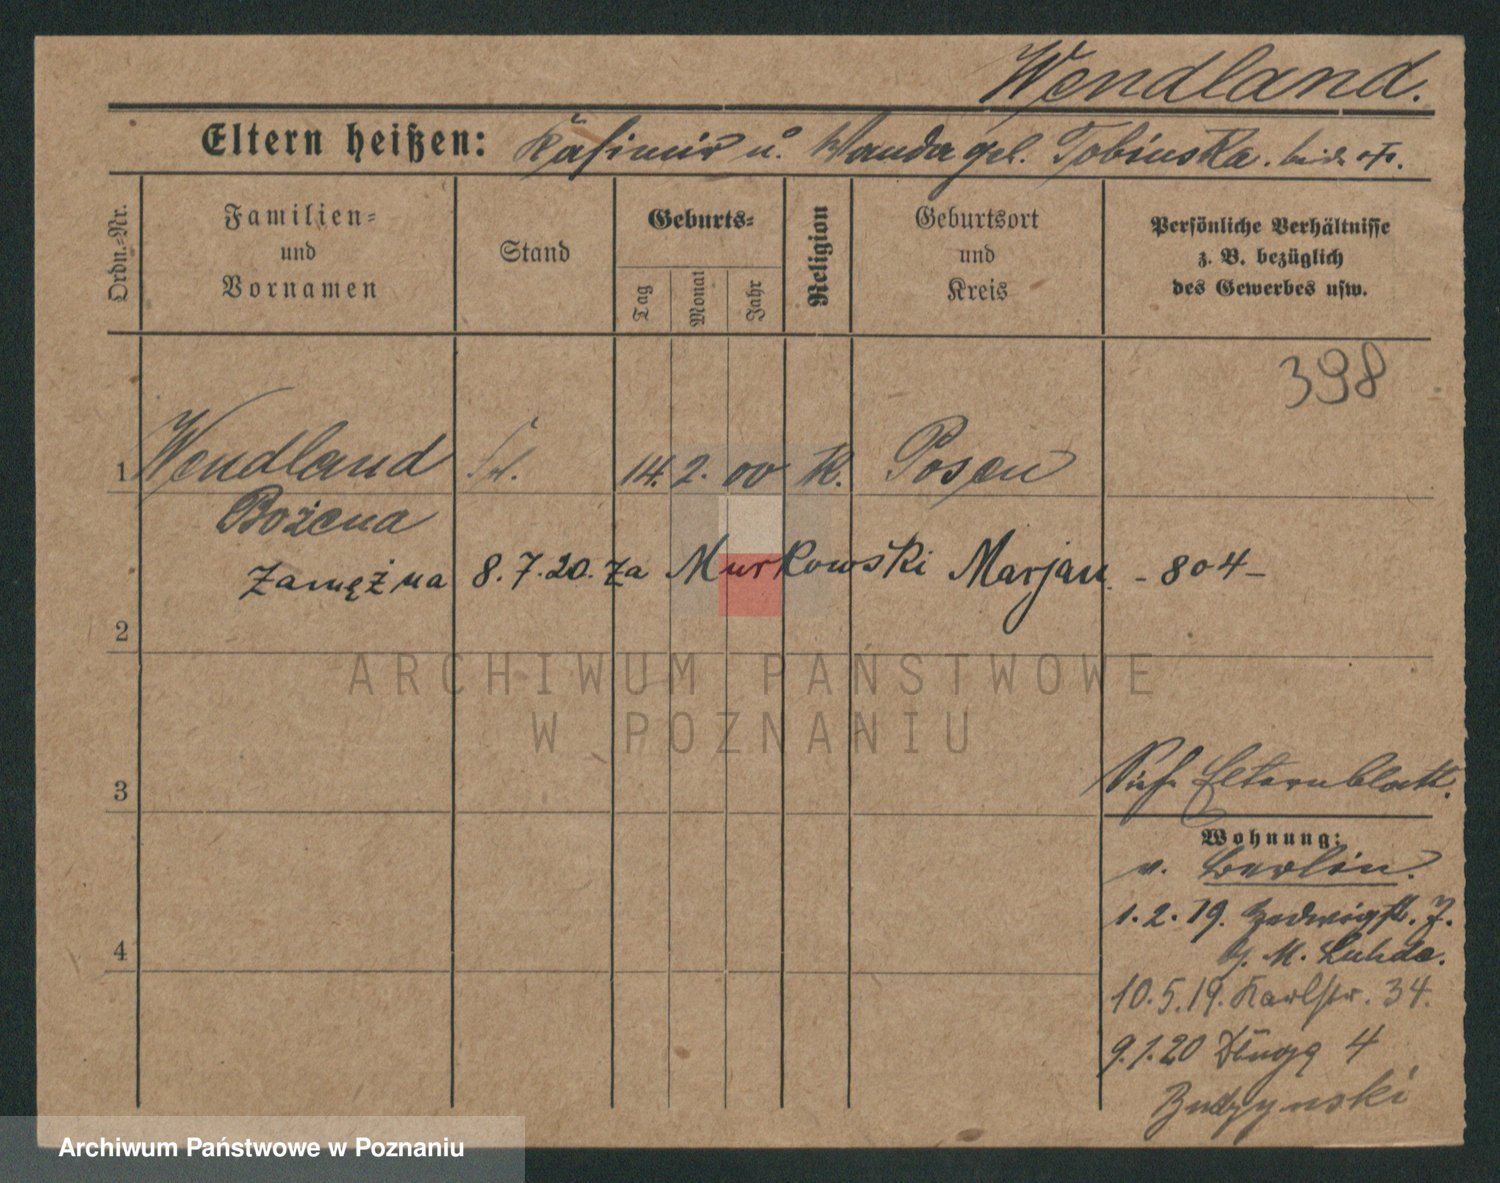 Wendland.
Eltern heißen: Kasimir u. Wanda geb. Tobinska.
Ordn.=Nr.
Familien=
und
Vornamen
Stand
Geburts=
Tag
Monat
Jahr
Religion
Geburtsort
und
Kreis
Persönliche Verhältnisse
z. B. bezüglich
des Gewerbes usw.
398
1 Wendland 14. 2. 00 K. Posen
Bożena
zamężna 8.7.20. za Murkowski Marjan - 804 -
2
ARCHIWUM PAŃSTWOWE
W POZNANIU
3
Elternblatt.
Wohnung:
v. Berlin.
1.2.19. Hedwigstr. 7.
b. M. Luhde.
10.5.19. Karlstr. 34.
4
9.1.20 Długa 4
Budzynski
Archiwum Państwowe w Poznaniu